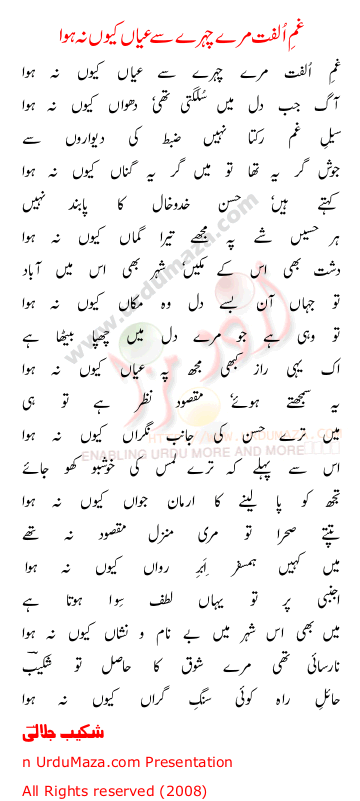 غمِ اُلفت مرے چہرے سے عیاں کیوں نہ ہوا
غمِ اُلفت مرے چہرے سے عیاں کیوں نہ ہوا
آگ جب دل میں سُلگتی تھی ٗ دھواں کیوں نہ ہوا
سیلِ غم رکتا نہیں ضبط کی دیواروں سے
جوشِ گر یہ تھا تو میں گر یہ کناں کیوں نہ ہوا
کہتے ہیں ٗ حسن خدوخال کا پابند نہیں
ہر حسیں شے پہ مجھے تیرا گماں کیوں نہ ہوا
دشت بھی اس کے مکیں ٗ شہر بھی اس میں آباد
تو جہاں آن بسے دل وہ مکاں کیوں نہ ہوا
تو وہی ہے جو مرے دل میں چُھپا بیٹھا ہے
اک یہی راز کبھی مجھ پہ عیاں کیوں نہ ہوا
یہ سمجھتے ہوئے ٗ مقصودِ نظر ہے تو ہی
میں ترے حسن کی جانب نگراں کیوں نہ ہوا
اس سے پہلے کہ ترے لمس کی خوشبو کھو جائے
تجھ کو پا لینے کا ارمان جواں کیوں نہ ہوا
تپتے صحرا تو مری منزلِ مقصود نہ تھے
میں کہیں ہمسفرِ اَبرِ رواں کیوں نہ ہوا
اجنبی پر تو یہاں لطف سِوا ہوتا ہے
میں بھی اس شہر میں بے نام و نشاں کیوں نہ ہوا
نارسائی تھی مرے شوق کا حاصل تو شکیبؔ
حائلِ راہ کوئی سنگِ گراں کیوں نہ ہوا
شکیب جلالیؔ
n UrduMaza.com Presentation
All Rights reserved (2008)
www.urdumaza.com
اردو مزا
HTTP://WWW.URDUMAZA.COM
ENABLING URDU MORE AND MORE